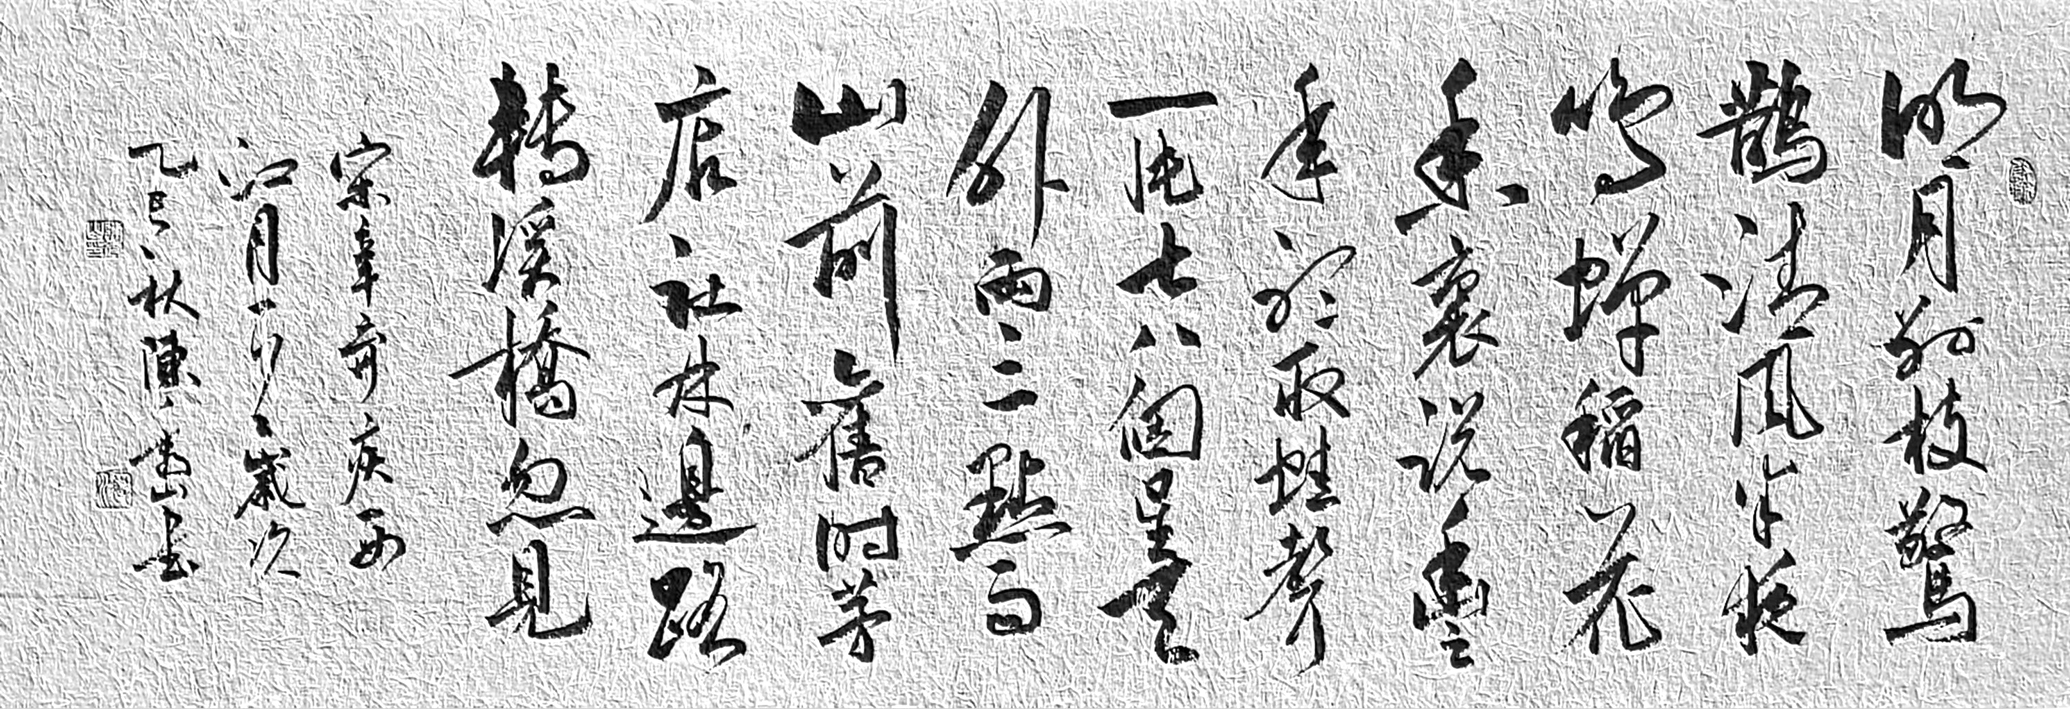 明月别枝驚
鵲清風半夜
鳴蟬稻花
香裏説豐
年聽取蛙聲
一片七八個星天
外兩三點雨
山前舊時茅
店社林邊路
轉溪橋忽見
宋辛棄疾西
江月一首歲次
乙巳秋陳山書